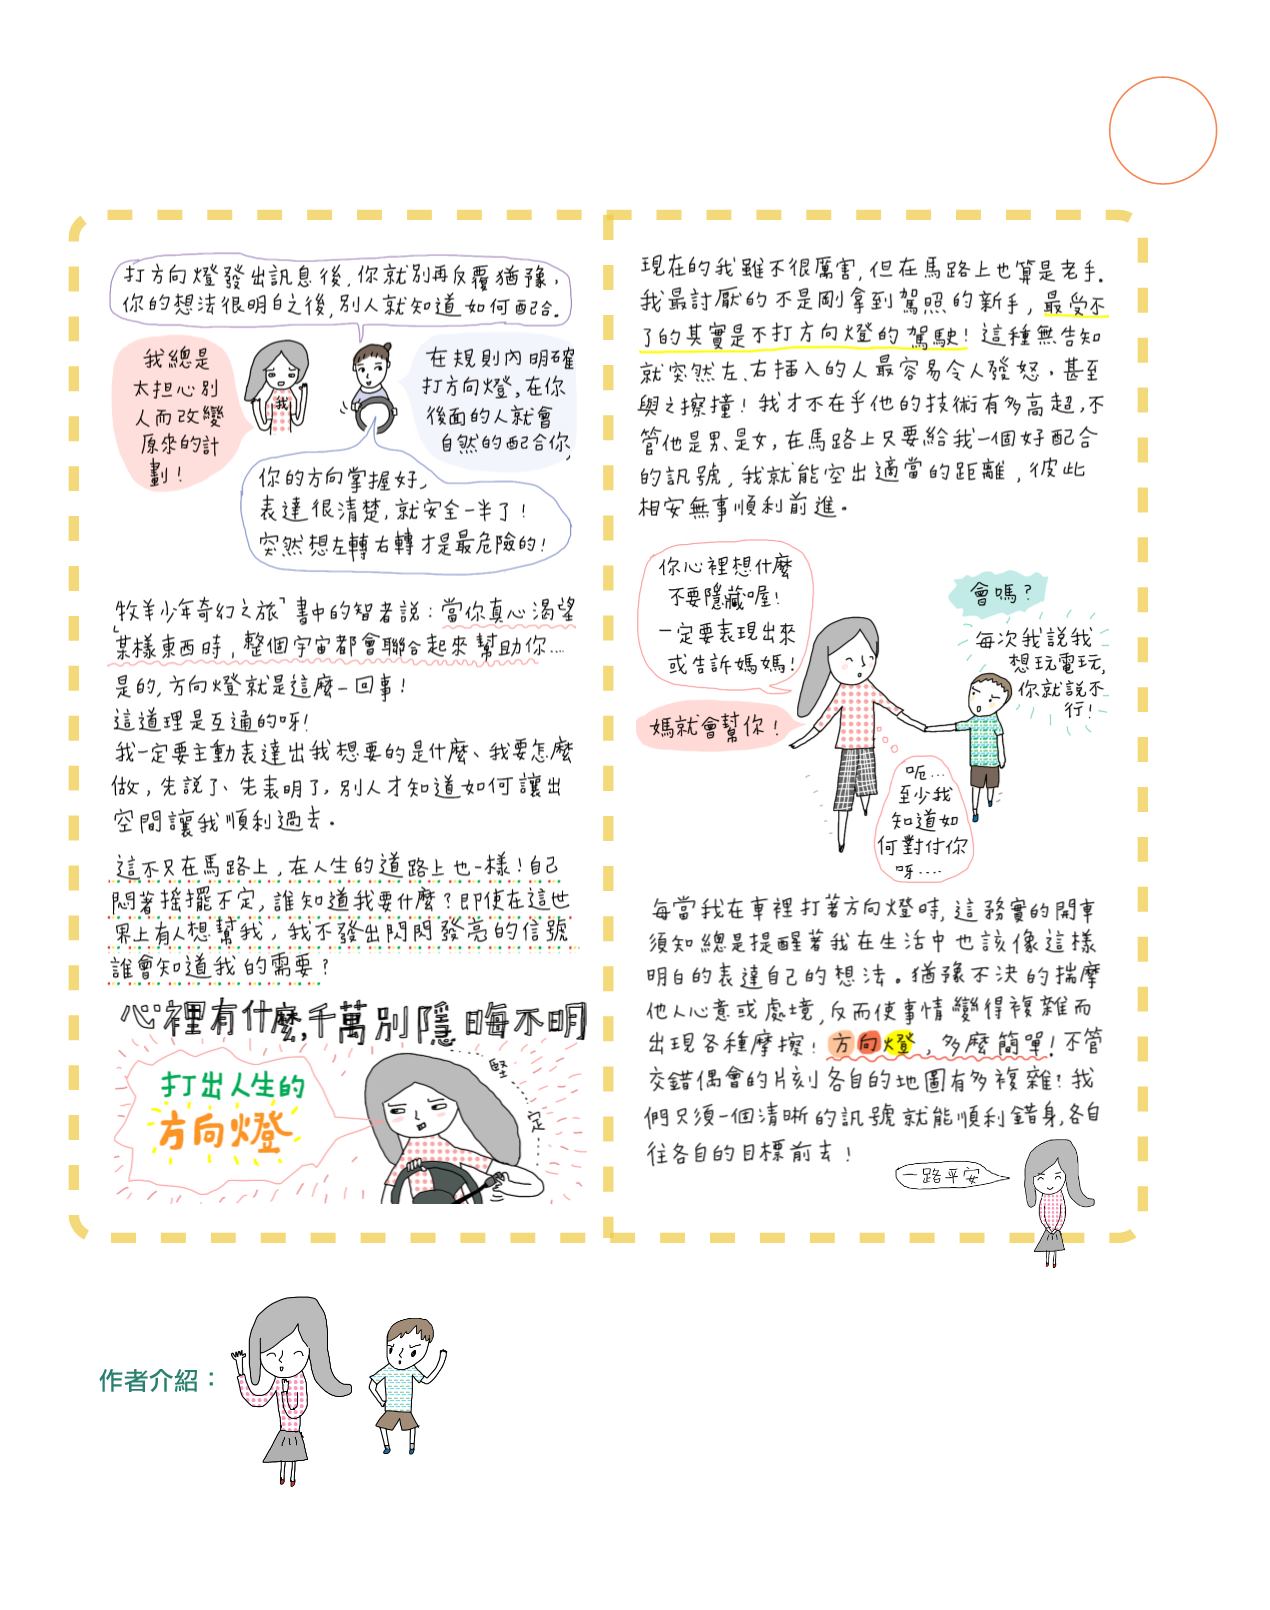 打方向燈發出訊息後,你就別再反覆猶豫,
你的想法很明白之後,別人就知道如何配合.
我總是
太担心別
人而改變
原來的計
劃!
我
在規則內明確
打方向燈,在你
後面的人就會
自然的配合你,
你的方向掌握好,
表達很清楚,就安全一半了!
突然想左轉右轉才是最危險的!
「牧羊少年奇幻之旅」書中的智者說:當你真心渴望
某樣東西時,整個宇宙都會聯合起來幫助你....
是的,方向燈就是這麼一回事!
這道理是互通的呀!
我一定要主動表達出我想要的是什麼、我要怎麼
做,先說了、先表明了,別人才知道如何讓出
空間讓我順利過去。
這不只在馬路上,在人生的道路上也一樣!自己
悶著搖擺不定,誰知道我要什麼?即使在這世
界上有人想幫我,我不發出閃閃發亮的信號
誰會知道我的需要?
心裡有什麼,千萬別隱晦不明
打出人生的
方向燈
堅...定...
現在的我雖不很厲害,但在馬路上也算是老手.
我最討厭的不是剛拿到駕照的新手,最受不
了的其實是不打方向燈的駕駛!這種無告知
就突然左、右插入的人最容易令人發怒,甚至
與之擦撞!我才不在乎他的技術有多高超,不
管他是男、是女,在馬路上只要給我一個好配合
的訊號,我就能空出適當的距離,彼此
相安無事順利前進。
你心裡想什麼
不要隱藏喔!
一定要表現出來
或告訴媽媽!
媽就會幫你!
會嗎?
每次我說我
想玩電玩,
你就說不
行!
呃...
至少我
知道如
何對付你
呀....
每當我在車裡打著方向燈時,這務實的開車
須知總是提醒著我在生活中也該像這樣
明白的表達自己的想法。猶豫不決的揣摩
他人心意或處境,反而使事情變得複雜而
出現各種摩擦!方向燈,多麼簡單!不管
交錯偶會的片刻各自的地圖有多複雜?我
們只須一個清晰的訊號就能順利錯身,各自
往各自的目標前去!
一路平安
作者介紹: